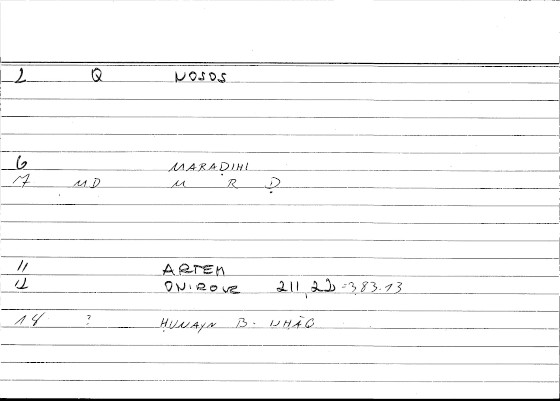 2 Q NOSOS
6 MARAḌIHI
7 MD M R Ḍ
11 ARTEM
12 ONIROVE 211, 22 = 383.13
14 ? ḤUNAYN B.